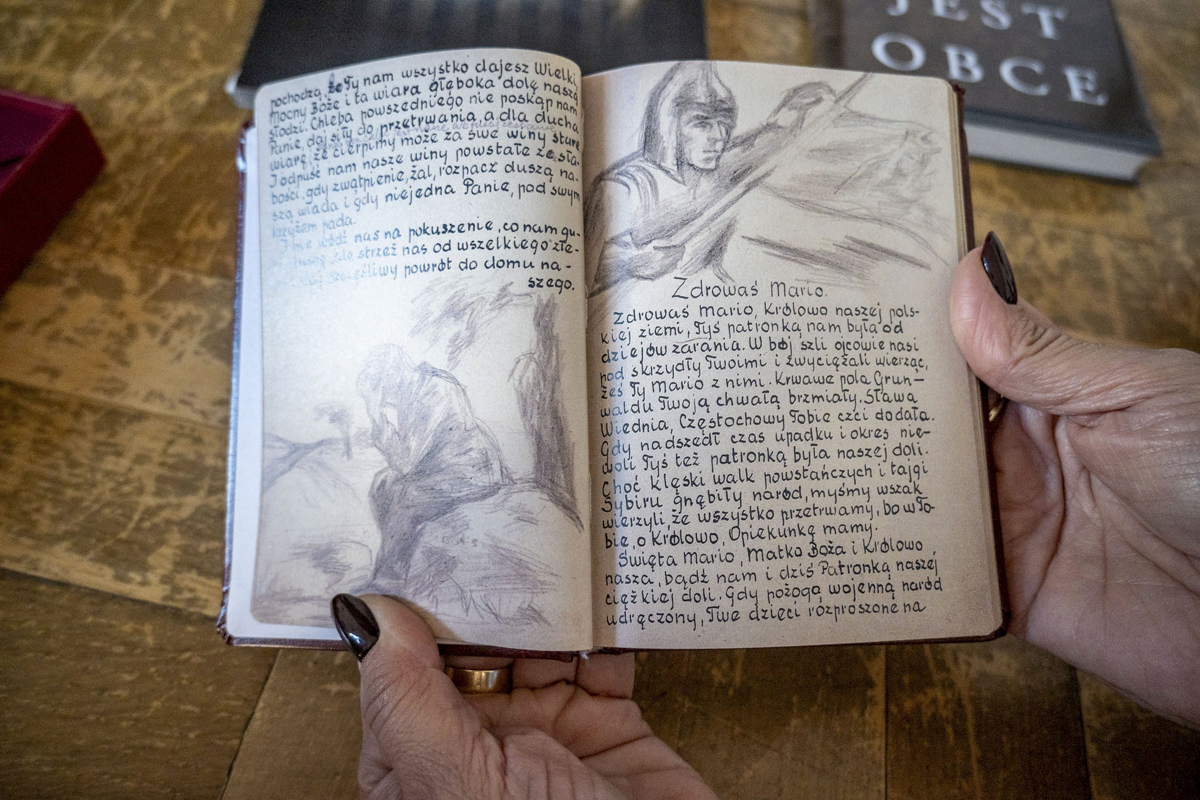 JEST
OBCE
pochodzą że Ty nam wszystko dajesz Wielki,
Mocny Boże i ta wiara głęboka dolę naszą
słodzi. Chleba powszedniego nie poskąp nam
Panie, doj siły do przetrwania, a dla ducha
wiarę, że cierpimy może za swe winy stare
I odpuść nam nasze winy powstałe ze sła-
bości, gdy zwątpienie, żal, rozpacz duszą na-
szą włada i gdy niejedna Panie, pod swym
krzyżem pada.
I nie wódź nas na pokuszenie, co nam gu-
strzeż nas od wszelkiego złe-
powrót do domu na-
szego.
Zdrowaś Mario.
Zdrowaś Mario, Królowo naszej pols-
kiej ziemi, Tyś patronką nam była od
dziejów zarania. W bój szli ojcowie nasi
pod skrzydły Twoimi i zwyciężali wierząc,
żeś Ty Mario z nimi. Krwawe pola Grun-
waldu Twoją chwałą brzmiały. Sława
Wiednia, Częstochowy Tobie czci dodała.
Gdy nadszedł czas upadku i okres nie-
woli Tyś też patronką była naszej doli.
Choć klęski walk powstańczych i tajgi
Sybiru gnębiły naród, myśmy wszak
wierzyli, że wszystko przetrwamy, bo w To-
bie, o Królowo, Opiekunkę mamy.
Święta Mario, Matko Boża i Królowo
nasza, bądź nam i dziś Patronką naszej
ciężkiej doli. Gdy pożogą wojenną naród
udręczony, Twe dzieci rozproszone na